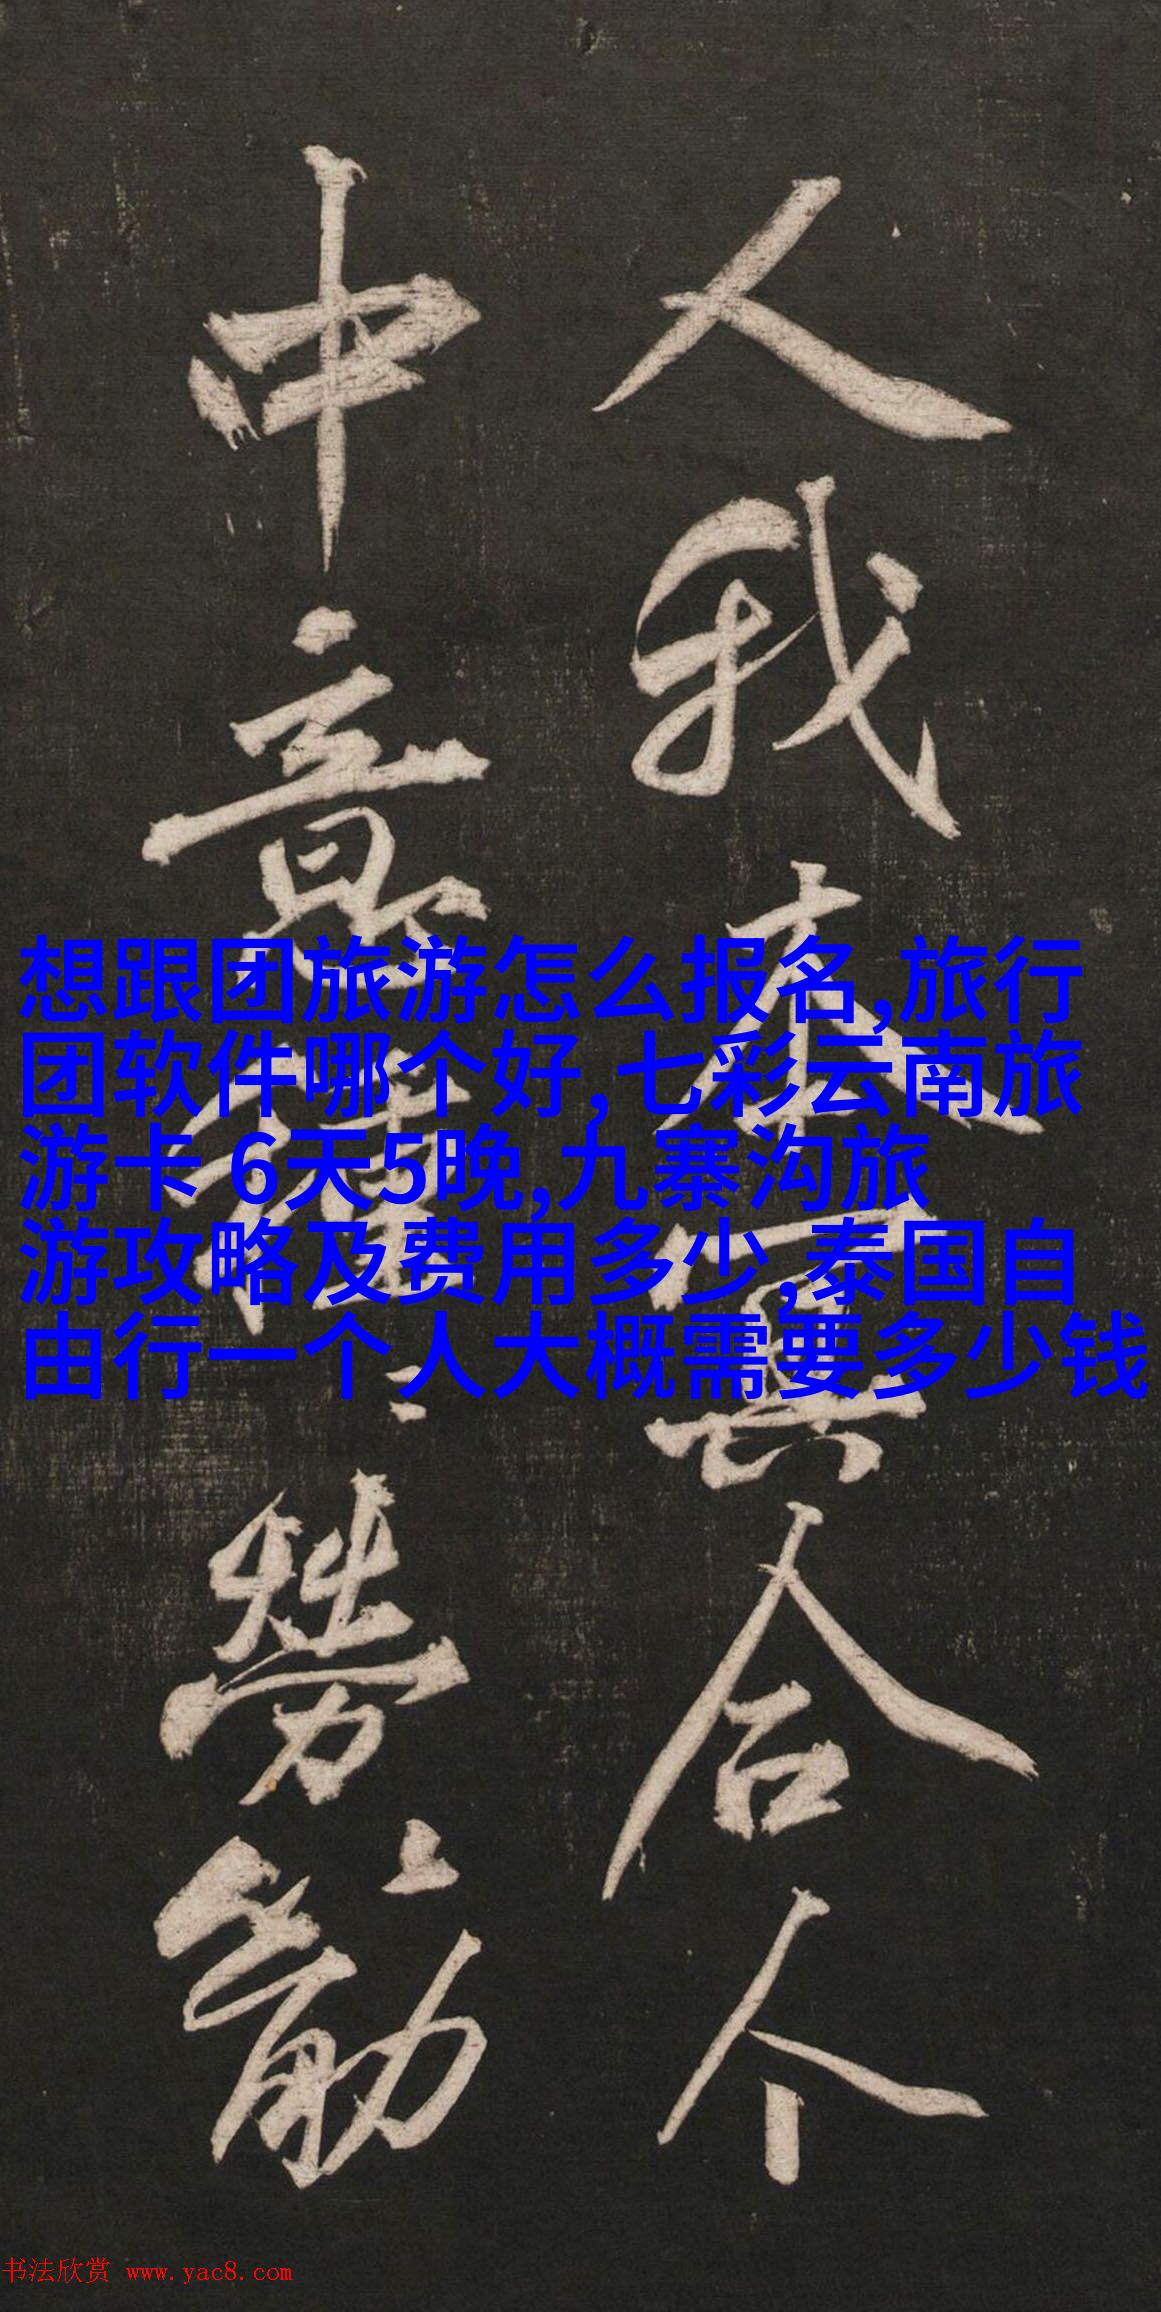 人我本合个
中意勞筋
想跟团旅游怎么报名,旅行
团软件哪个好,七彩云南旅
游卡 6天5晚,九寨沟旅
游攻略及费用多少,泰国自
由行一个人大概需要多少钱
书法欣赏 www.yac8.com